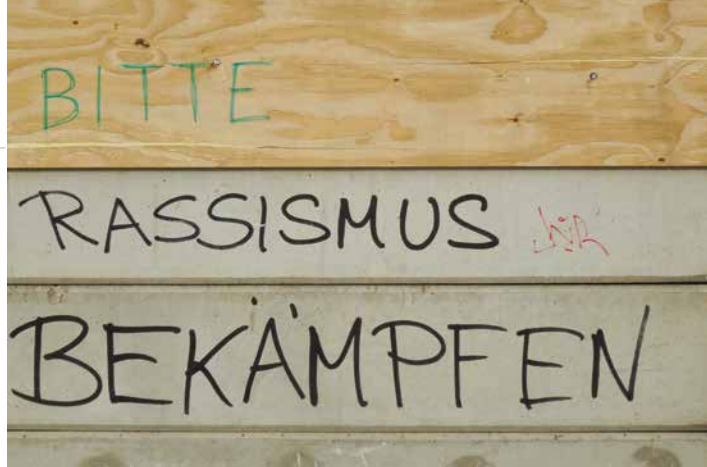 BITTE
RASSISMUS
BEKÄMPFEN